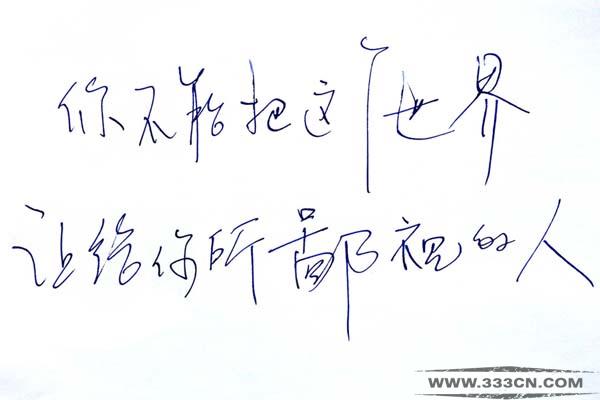 你不能把这个世界
让给你所鄙视的人
WWW.333CN.COM